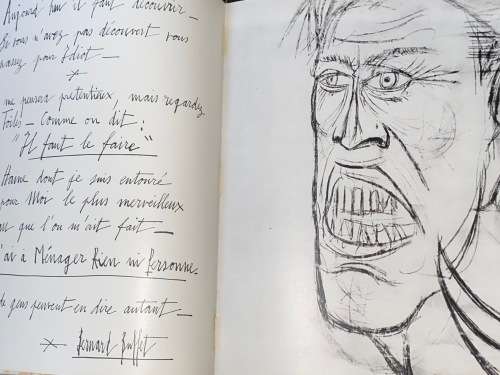 Aujourd'hui il faut découvrir —
Si vous n'avez pas découvert vous
passez pour Idiot —
me pensera prétentieux, mais regardez
Toiles — Comme on dit :
"Il faut le faire"
Haine dont je suis entouré
pour Moi le plus merveilleux
que l'on m'ait fait —
ai à Ménager Rien ni Personne
de gens peuvent en dire autant —
Bernard Buffet